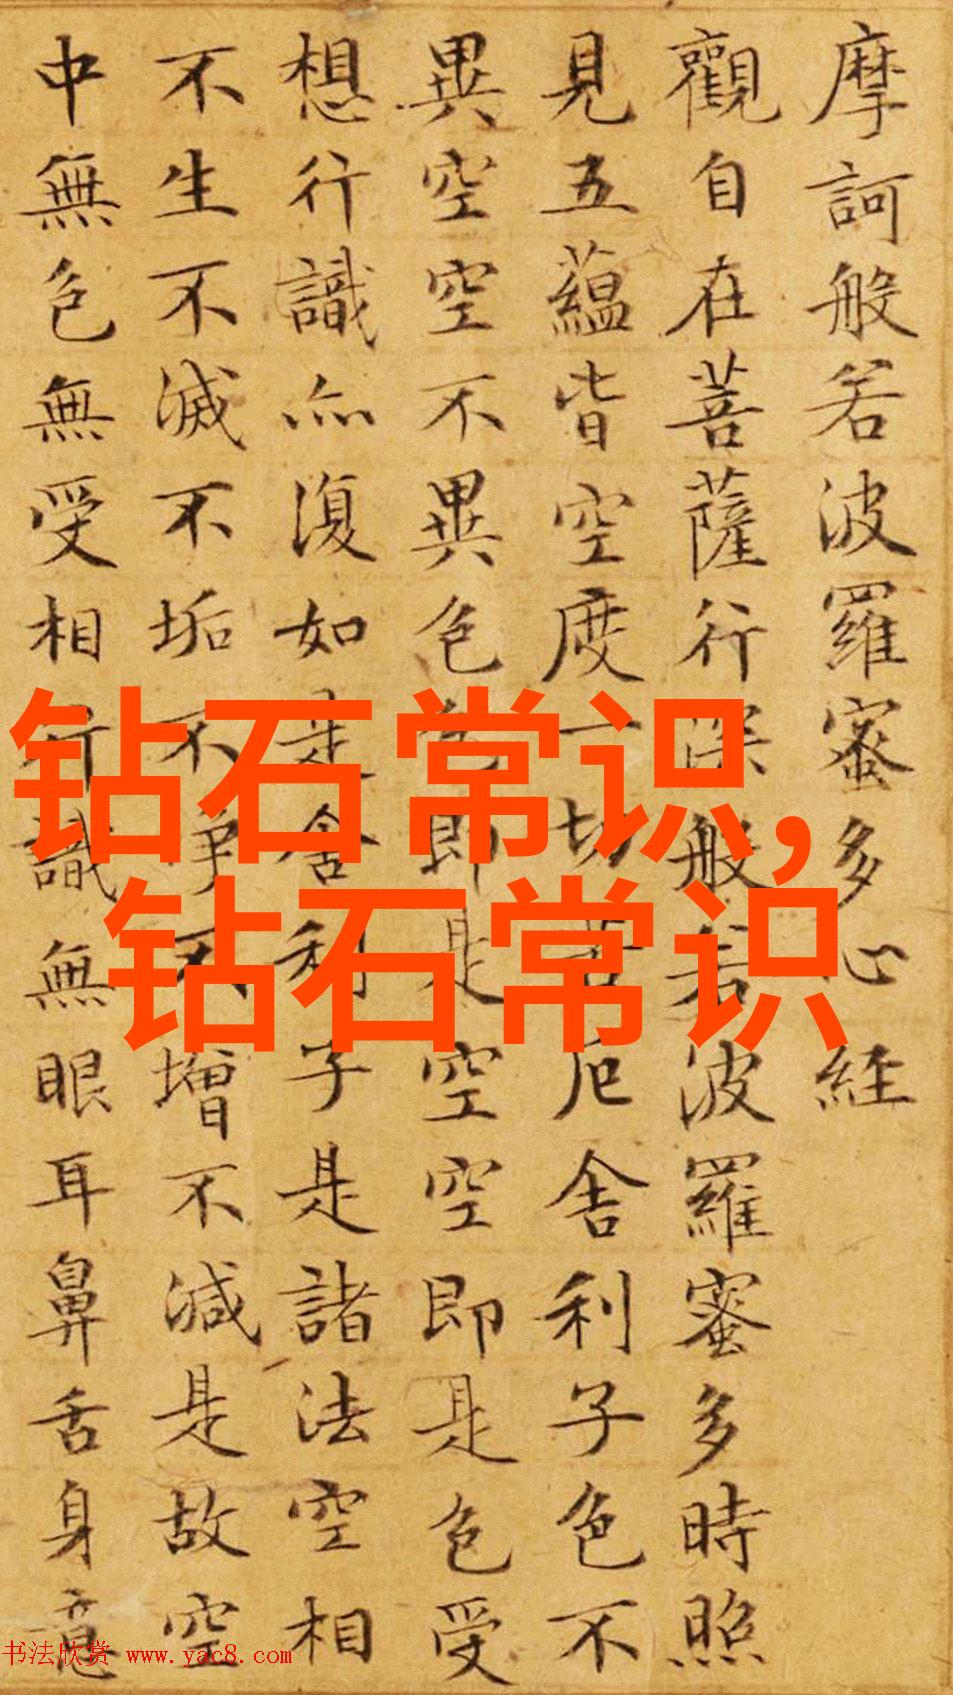 摩訶般若波羅蜜多心經
觀自在菩薩行深般若波羅蜜多時照
見五蘊皆空度一切苦厄舍利子色不
異空空不異色色即是空空即是色受
想行識亦復如是舍利子是諸法空相
不生不滅不垢不淨不增不減是故空
中無色無受想行識無眼耳鼻舌身意
钻石常识,
钻石常识
书法欣赏 www.yac8.com